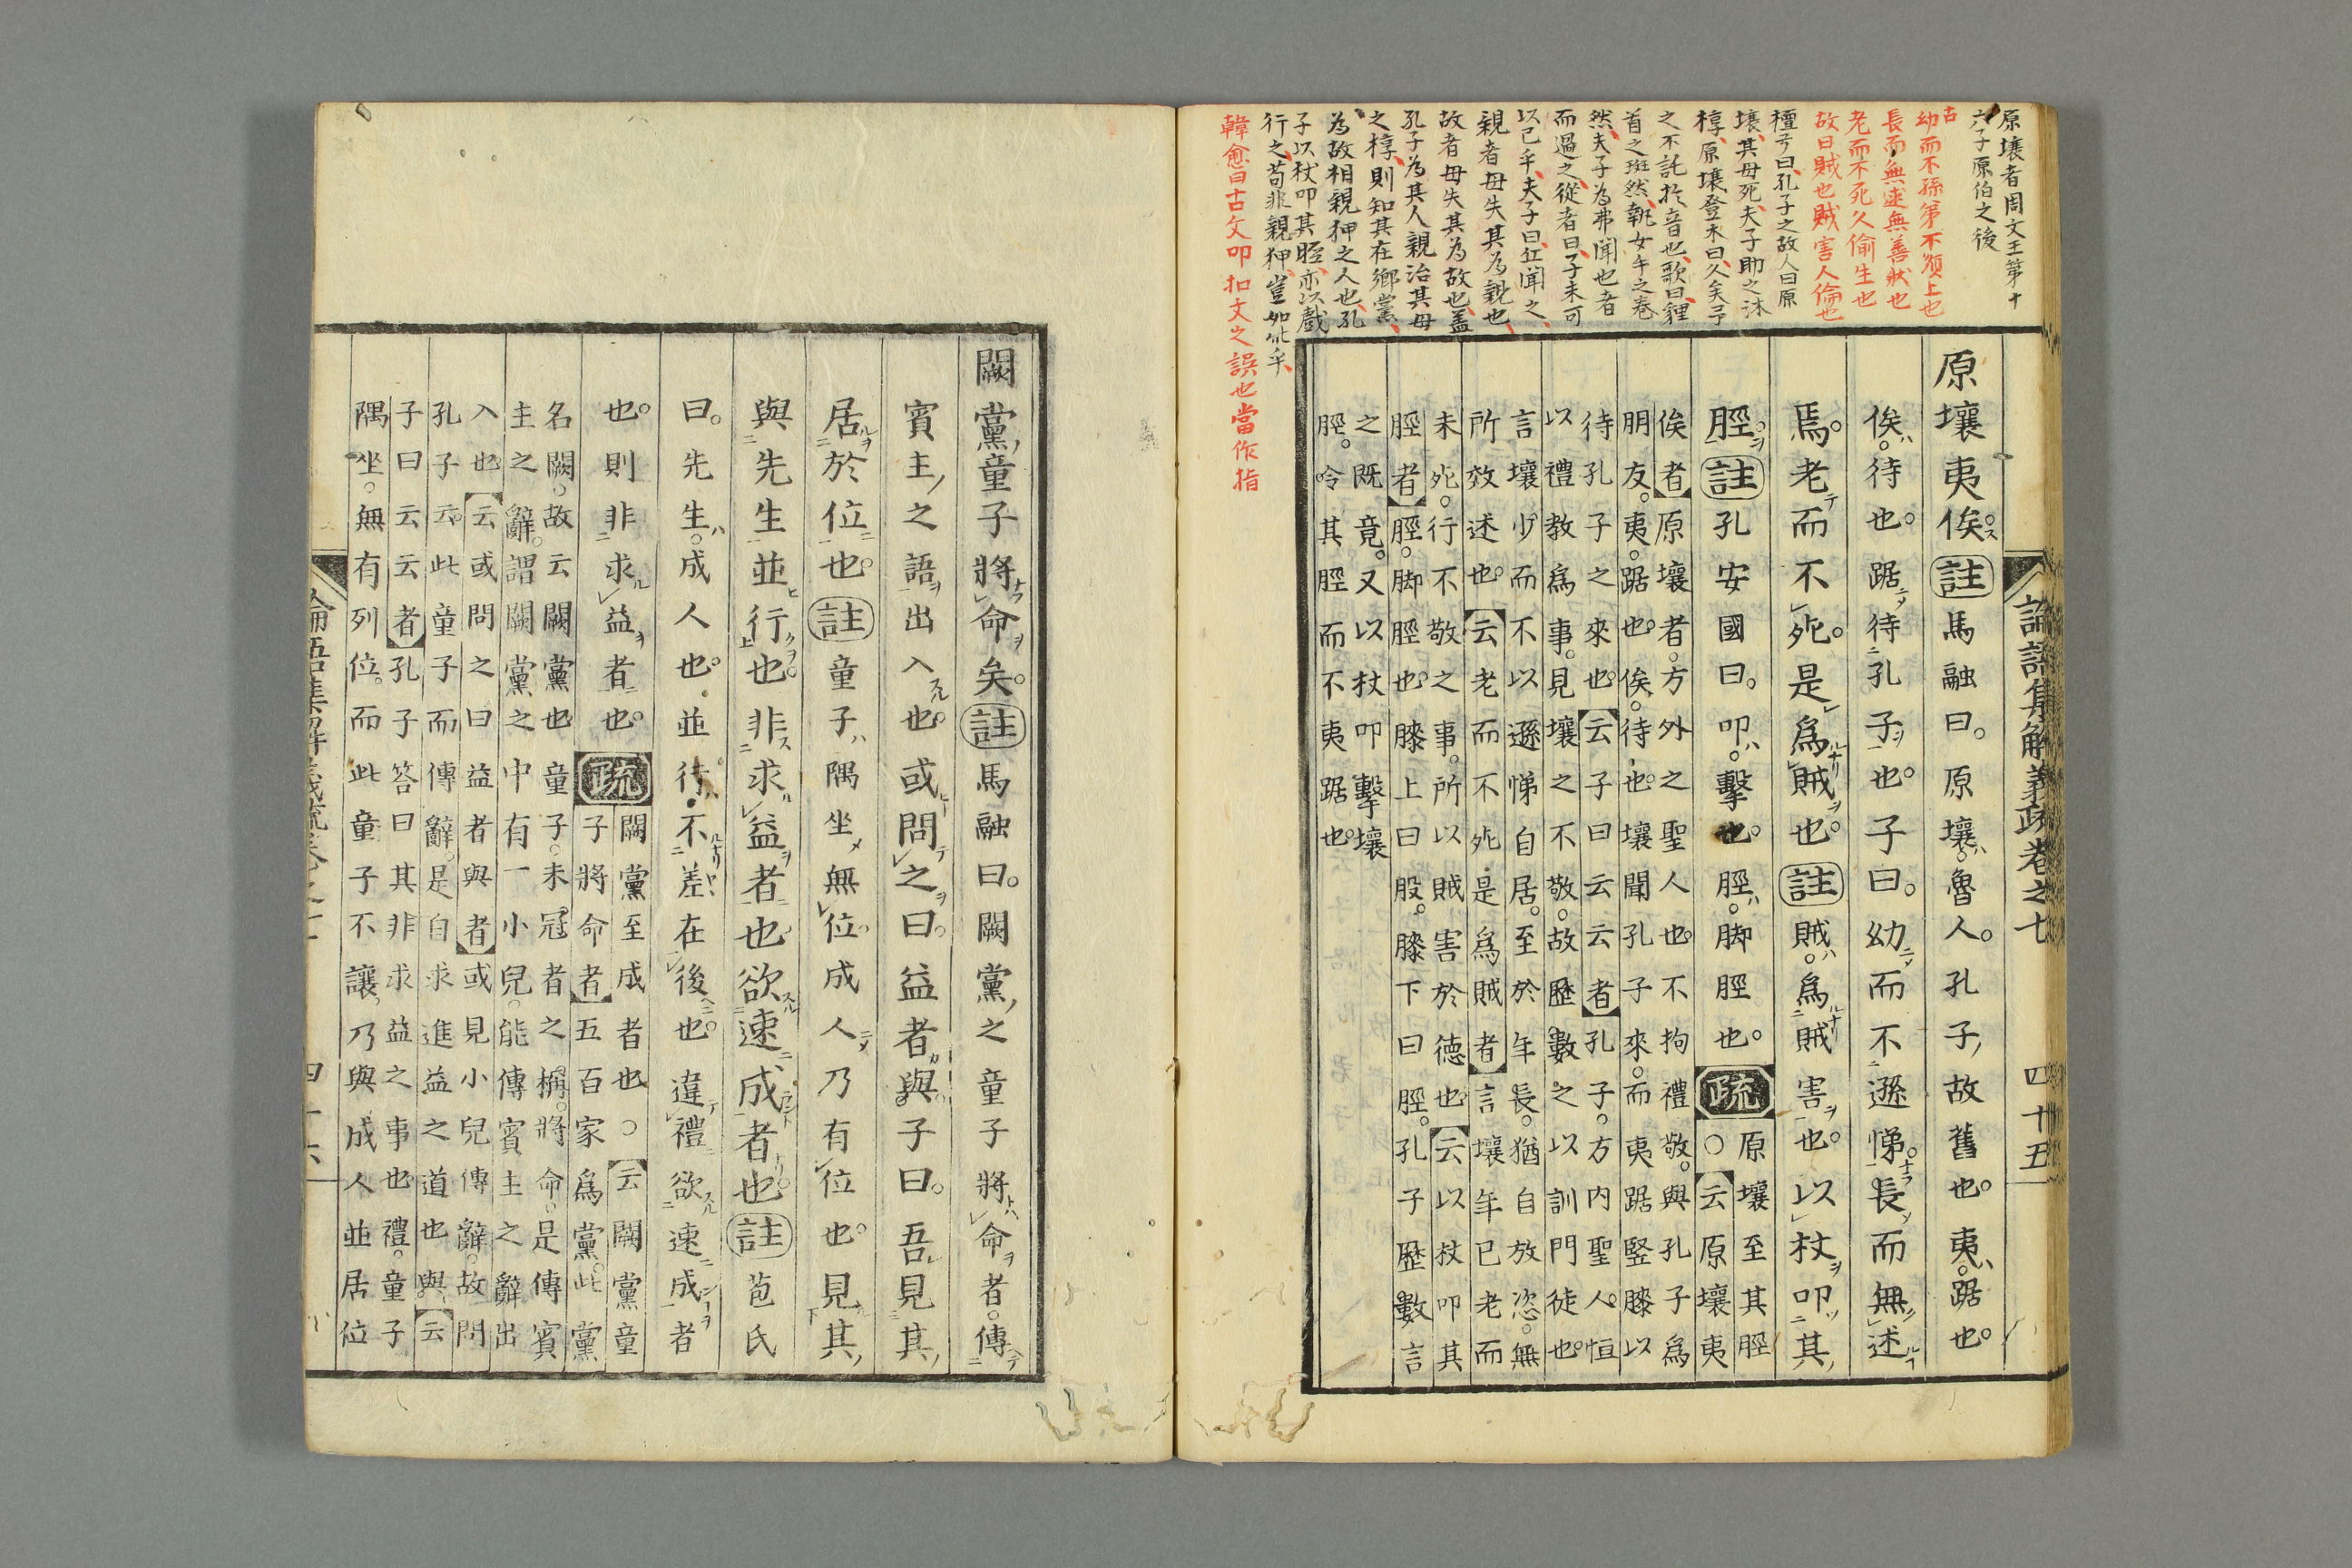 原壤者周文王第十
六子原伯之後
古
幼而不孫弟不順上也
長而無述無善狀也
老而不死久偷生也
故曰賊也賊害人倫也
檀弓曰孔子之故人曰原
壤其母死夫子助之沐
椁原壤登木曰久矣予
之不託於音也歌曰貍
首之斑然執女手之卷
然夫子為弗聞也者
而過之從者曰子未可
以已乎夫子曰丘聞之
親者毋失其為親也
故者毋失其為故也蓋
孔子為其人親治其母
之椁則知其在鄉黨
為故相親狎之人也孔
子以杖叩其脛亦以戲
行之苟非親狎豈如此乎
韓愈曰古文叩扣文之誤也當作指
論語集解義疏卷之七 四十五
原壤夷俟。註馬融曰。原壤。魯人。孔子故舊也。夷。踞也。
俟。待也。踞待孔子也。子曰。幼而不遜悌。長而無述
焉。老而不死。是爲賊也。註賊。爲賊害也。以杖叩其
脛。註孔安國曰。叩。擊也。脛。脚脛也。疏原壤至其脛
○云原壤夷
俟者原壤者。方外之聖人也。不拘禮敬。與孔子爲
朋友。夷。踞也。俟。待也。壤聞孔子來。而夷踞竪膝以
待孔子之來也。云子曰云云者孔子。方内聖人。恒
以禮教爲事。見壤之不敬。故歷數之以訓門徒也。
言壤少而不以遜悌自居。至於年長。猶自放恣。無
所效述也。云老而不死是爲賊者言壤年已老而
未死。行不敬之事。所以賊害於德也。云以杖叩其
脛者脛。脚脛也。膝上曰股。膝下曰脛。孔子歷數言
之既竟。又以杖叩擊壤
脛。呤其脛而不夷踞也。
闕黨童子將命矣。註馬融曰。闕黨之童子將命者。傳
賓主之語出入也。或問之曰。益者與。子曰。吾見其
居於位也。註童子隅坐無位。成人乃有位也。見其
與先生並行也非求益者也欲速成者也註苞氏
曰。先生。成人也。並行。不差在後也。違禮欲速成者
也。則非求益者也。疏闕黨至成者也○云闕黨童
子將命者五百家爲黨。此黨
名闕。故云闕黨也童子。未冠者之稱。將命。是傳賓
主之辭。謂闕黨之中有一小兒。能傳賓主之辭出
入也云或問之曰益者與者或見小兒傳辭。故問
孔子云。此童子而傳辭。是自求進益之道也與。云
子曰云云者孔子答曰其非求益之事也禮。童子
隅坐。無有列位。而此童子不讓。乃與成人並居位